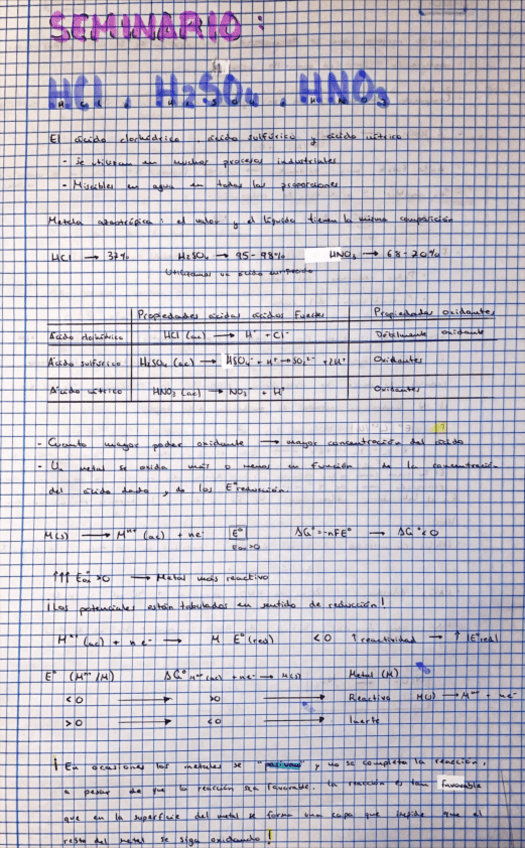 SEMINARIO:
HCl, H₂SO₄, HNO₃
El ácido clorhídrico, ácido sulfúrico y ácido nítrico
- Se utilizan en muchos procesos industriales
- Miscibles en agua en todas las proporciones
Mezcla azeotrópica: el valor y el líquido tienen la misma composición
HCl → 37% H₂SO₄ → 95-98% HNO₃ → 68-70%
Utilizamos un ácido
Propiedades ácidas ácidos Fuertes Propiedades oxidantes
Ácido clorhídrico HCl (ac) → H⁺ + Cl⁻ Débilmente oxidante
Ácido sulfúrico H₂SO₄ (ac) → HSO₄⁻ + H⁺ → SO₄²⁻ + 2H⁺ Oxidantes
Ácido nítrico HNO₃ (ac) → NO₃⁻ + H⁺ Oxidantes
- Cuanto mayor poder oxidante → mayor concentración del ácido
- Un metal se oxida más o menos en función de la concentración
del ácido dado, de los E° reducción.
M(s) → Mⁿ⁺ (ac) + ne⁻ E° ΔG° = -nFE° → ΔG° < 0
Eox > 0
↑↑↑ E°ox > 0 → Metal más reactivo
¡Los potenciales están tabulados en sentido de reducción!
Mⁿ⁺ (ac) + ne⁻ → M E° (red) < 0 ↑ reactividad → ↑ |E°red|
E° (Mⁿ⁺/M) ΔG° Mⁿ⁺(ac) + ne⁻ → M(s) Metal (M)
< 0 → > 0 → Reactivo M(s) → Mⁿ⁺ + ne⁻
> 0 → < 0 → Inerte
¡En ocasiones los metales se "pasivan" y no se completa la reacción,
a pesar de que la reacción sea favorable. La reacción es tan favorable
que en la superficie del metal se forma una capa que impide que el
resto del metal se siga oxidando!